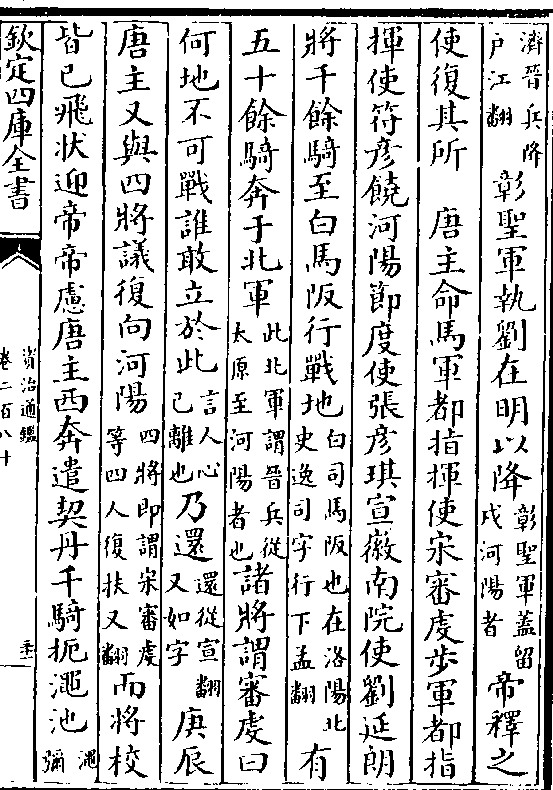 濟晉兵降
戶江翻
彰聖軍執劉在明以降
彰聖軍蓋留
戍河陽者
帝釋之
使復其所　唐主命馬軍都指揮使宋審虔步軍都指
揮使符彥饒河陽節度使張彥琪宣徽南院使劉延朗
將千餘騎至白馬阪行戰地
白司馬阪也在洛陽北
史逸司字行下孟翻
有
五十餘騎奔于北軍
此北軍謂晉兵從
太原至河陽者也
諸將謂審虔曰
何地不可戰誰敢立於此
言人心
已離也
乃還
還從宣翻
又如字
庚辰
唐主又與四將議復向河陽
四將即謂宋審虔
等四人復扶又翻
而將校
皆已飛狀迎帝帝慮唐主西奔遣契丹千騎扼澠池
澠
彌
欽定四庫全書
資治通鑑
卷二百八十